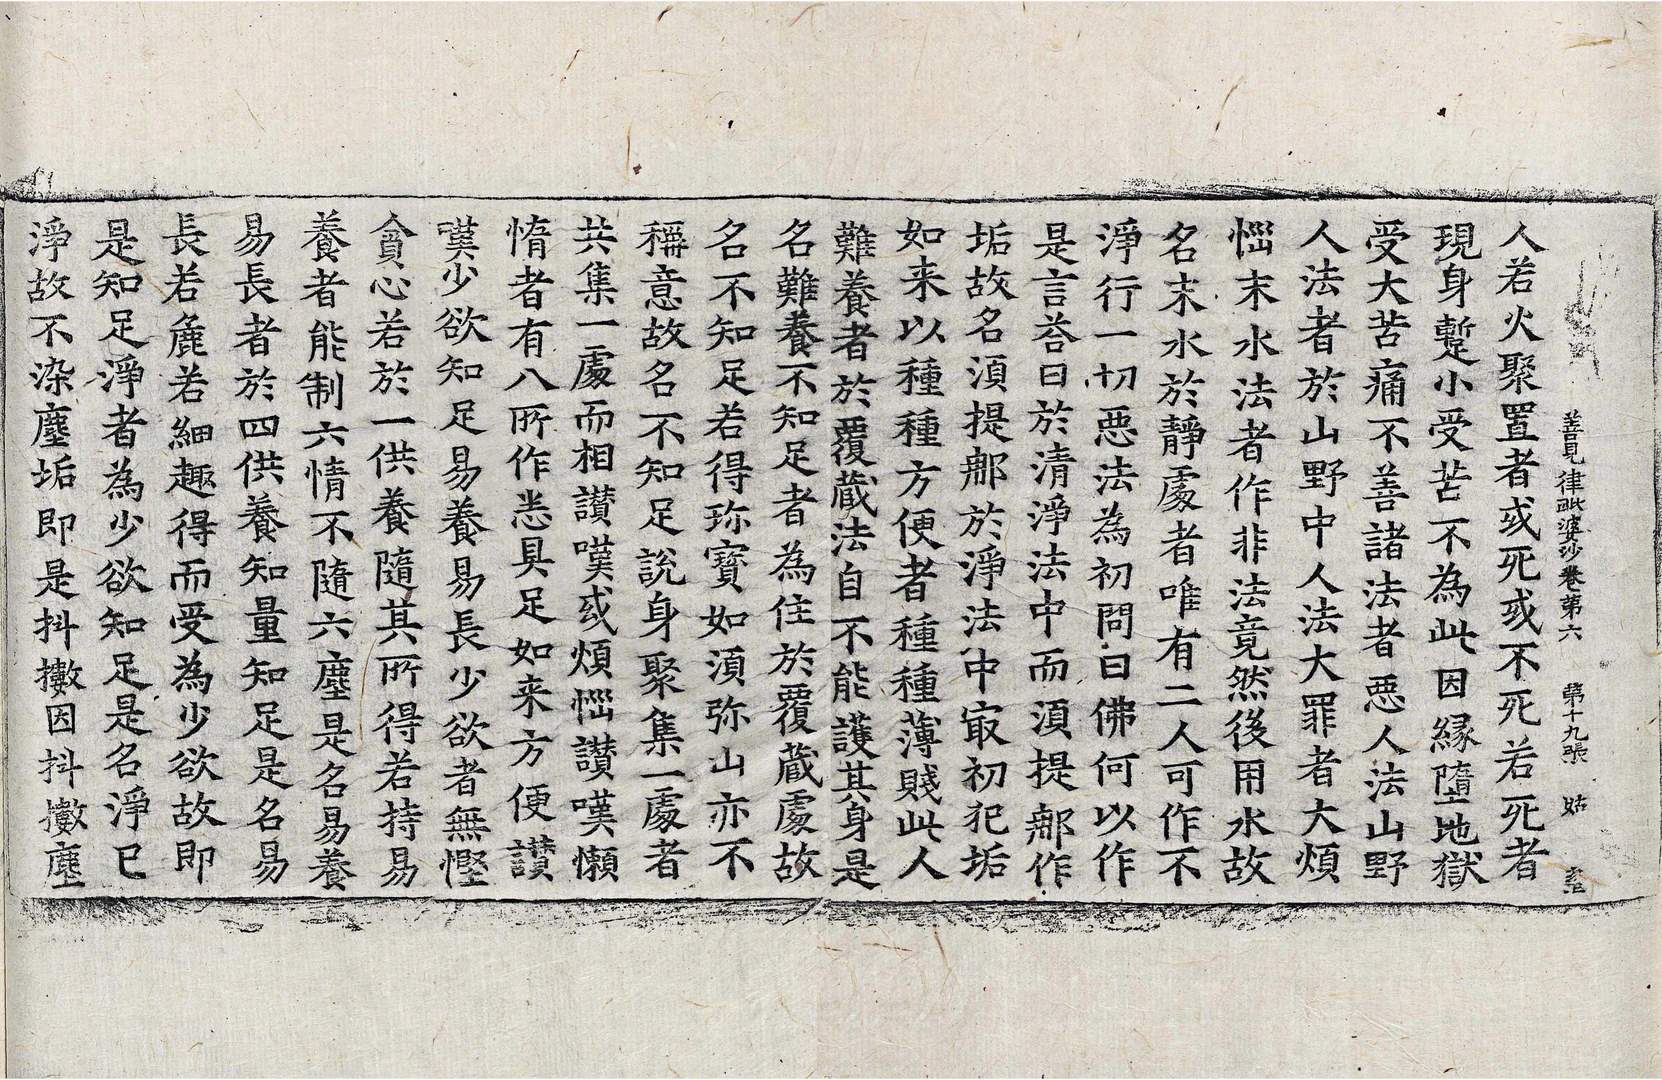 善見律毗婆沙卷第六 第十九張 姑
人若火聚置者或死或不死若死者
現身蹔小受苦不為此因緣墮地獄
受大苦痛不善諸法者惡人法山野
人法者於山野中人法大罪者大煩
惱末水法者作非法竟然後用水故
名末水於靜處者唯有二人可作不
淨行一切惡法為初問曰佛何以作
是言荅曰於清淨法中而湏提郍作
垢故名湏提郍於淨法中冣初犯垢
如来以種種方便者種種薄賤此人
難養者於覆蔵法自不能護其身是
名難養不知足者為住於覆蔵處故
名不知足若得珎寶如湏弥山亦不
稱意故名不知足說身聚集一處者
共集一處而相讃嘆或煩惱讃嘆懶
惰者有八所作悉具足如来方便讃
嘆少欲知足易養易長少欲者無慳
貪心若於一供養隨其所得若持易
養者能制六情不隨六塵是名易養
易長者於四供養知量知足是名易
長若麁若細趣得而受為少欲故即
是知足淨者為少欲知足是名淨已
淨故不染塵垢即是抖擻因抖擻塵